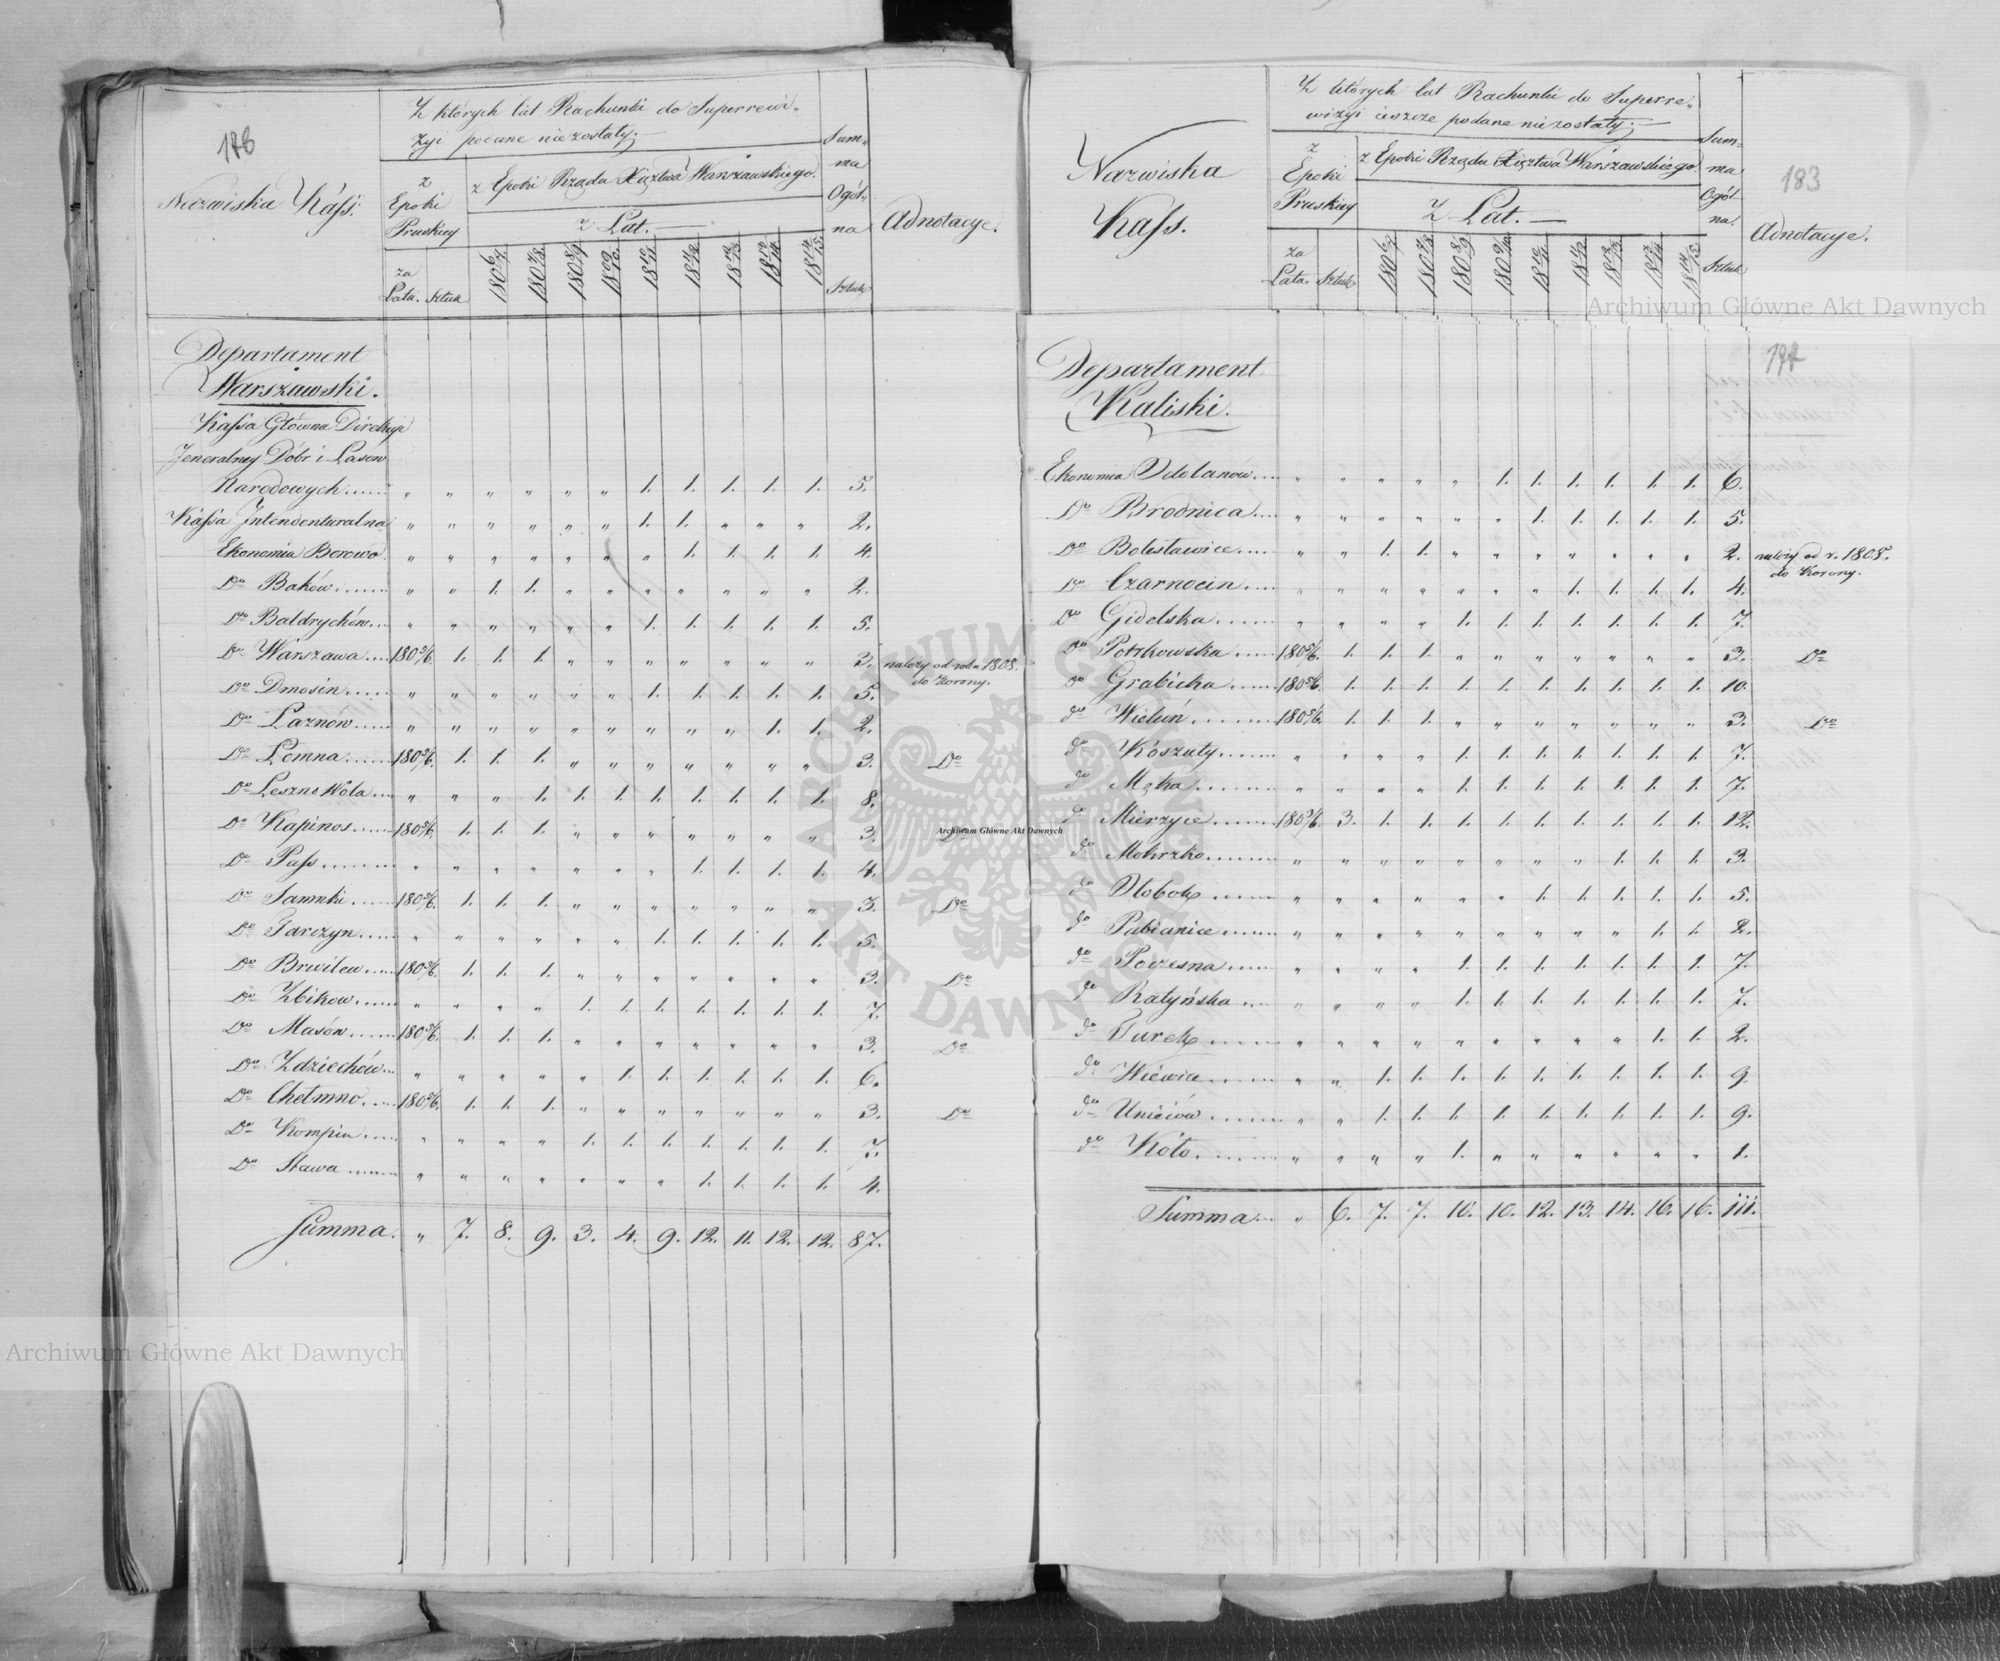 176
Nazwiska Kass.
Z których lat Rachunki do Superrewi-
zyi podane niezostały;
z Epoki Pruskiey
z Epoki Rządu Xięztwa Warszawskiego.
z Lat. —
za Lata. Sztuk
180 6/7 180 7/8 180 8/9 18 09/10 18 10/11 18 11/12 18 12/13 18 13/14 18 14/15
Summa Ogólna Sztuk
Adnotacye.
Departament
Warszawski.
Kassa Główna Direkcyi
Jeneralney Dóbr i Lasow
Narodowych...... „ „ „ „ „ „ 1. 1. 1. 1. 1. 5.
Kassa Intendenturalna „ „ „ „ „ „ 1. 1. „ „ „ 2.
Ekonomia Borowo „ „ „ „ „ „ „ 1. 1. 1. 1. 4.
Do Baków...... „ „ 1. 1. „ „ „ „ „ „ „ 2.
Do Baldrychów... „ „ „ „ „ „ 1. 1. 1. 1. 1. 5.
Do Warszawa.... 180 5/6. 1. 1. 1. „ „ „ „ „ „ „ 3. należy od roku 1808.
do Korony.
Do Dmosin...... „ „ „ „ „ „ 1. 1. 1. 1. 1. 5.
Do Laznów..... „ „ „ „ „ „ „ „ „ 1. 1. 2.
Do Lomna...... 180 5/6. 1. 1. 1. „ „ „ „ „ „ „ 3. Do
Do Leszno Wola... „ „ „ 1. 1. 1. 1. 1. 1. 1. 1. 8.
Do Kapinos..... 180 5/6. 1. 1. 1. „ „ „ „ „ „ „ 3. Do
Do Pass........ „ „ „ „ „ „ „ 1. 1. 1. 1. 4.
Do Sanniki...... 180 5/6. 1. 1. 1. „ „ „ „ „ „ „ 3. Do
Do Tarczyn..... „ „ „ „ „ „ 1. 1. 1. 1. 1. 5.
Do Brwilew.... 180 5/6. 1. 1. 1. „ „ „ „ „ „ „ 3. Do
Do Zbikow..... „ „ „ „ 1. 1. 1. 1. 1. 1. 1. 7.
Do Masów..... 180 5/6. 1. 1. 1. „ „ „ „ „ „ „ 3. Do
Do Zdziechów... „ „ „ „ „ 1. 1. 1. 1. 1. 1. 6.
Do Chełmno.... 180 5/6. 1. 1. 1. „ „ „ „ „ „ „ 3. Do
Do Kompin.... „ „ „ „ 1. 1. 1. 1. 1. 1. 1. 7.
Do Sława...... „ „ „ „ „ „ „ 1. 1. 1. 1. 4.
Summa. „ 7. 8. 9. 3. 4. 9. 12. 11. 12. 12. 87.
Nazwiska
Kass.
Z których lat Rachunki do Superre-
wizyi ieszcze podane niezostały;
z Epoki Pruskiey
z Epoki Rządu Xięztwa Warszawskiego.
Z Lat. —
za Lata. Sztuk
180 6/7 180 7/8 180 8/9 180 9/10 18 10/11 18 11/12 18 12/13 18 13/14 18 14/15
Summa Ogólna. Sztuk
183
Adnotacye.
177
Departament
Kaliski.
Ekonomia Odolanów.... „ „ „ „ „ 1. 1. 1. 1. 1. 1. 6.
Do Brodnica.... „ „ „ „ „ „ 1. 1. 1. 1. 1. 5.
Do Bolesławice.... „ „ 1. 1. „ „ „ „ „ „ „ 2. należy od r. 1808.
do Korony.
Do Czarnocin.... „ „ „ „ „ „ „ 1. 1. 1. 1. 4.
Do Gidelska...... „ „ „ „ 1. 1. 1. 1. 1. 1. 1. 7.
Do Potrkowska..... 180 5/6. 1. 1. 1. „ „ „ „ „ „ „ 3. Do
Do Grabicka...... 180 5/6. 1. 1. 1. 1. 1. 1. 1. 1. 1. 1. 10.
do Wieluń........ 180 5/6. 1. 1. 1. „ „ „ „ „ „ „ 3. Do
do Koszuty...... „ „ „ „ 1. 1. 1. 1. 1. 1. 1. 7.
do Męka........ „ „ „ „ 1. 1. 1. 1. 1. 1. 1. 7.
do Mierzyce...... 180 5/6. 3. 1. 1. 1. 1. 1. 1. 1. 1. 1. 12.
do Mokrzko....... „ „ „ „ „ „ „ „ 1. 1. 1. 3.
do Ołobok....... „ „ „ „ „ „ 1. 1. 1. 1. 1. 5.
do Pabianice..... „ „ „ „ „ „ „ „ „ 1. 1. 2.
do Poczesna..... „ „ „ „ 1. 1. 1. 1. 1. 1. 1. 7.
do Ratyńska.... „ „ „ „ 1. 1. 1. 1. 1. 1. 1. 7.
do Turek....... „ „ „ „ „ „ „ „ „ 1. 1. 2.
do Wiewia....... „ „ 1. 1. 1. 1. 1. 1. 1. 1. 1. 9.
do Uniciów...... „ „ 1. 1. 1. 1. 1. 1. 1. 1. 1. 9.
do Koło........ „ „ „ „ 1. „ „ „ „ „ „ 1.
Summa... „ 6. 7. 7. 10. 10. 12. 13. 14. 16. 16. 111.
Archiwum Główne Akt Dawnych
Archiwum Główne Akt Dawnych
Archiwum Główne Akt Dawnych
ARCHIWUM GŁÓWNE AKT DAWNYCH